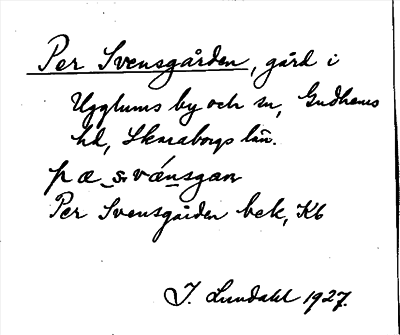 Per Svensgården, gård i
Ugglums by och sn, Gudhems
hd, Skaraborgs län.
pæ_svánsgan
Per Svensgården bek, Kb
I. Lundahl 1927.